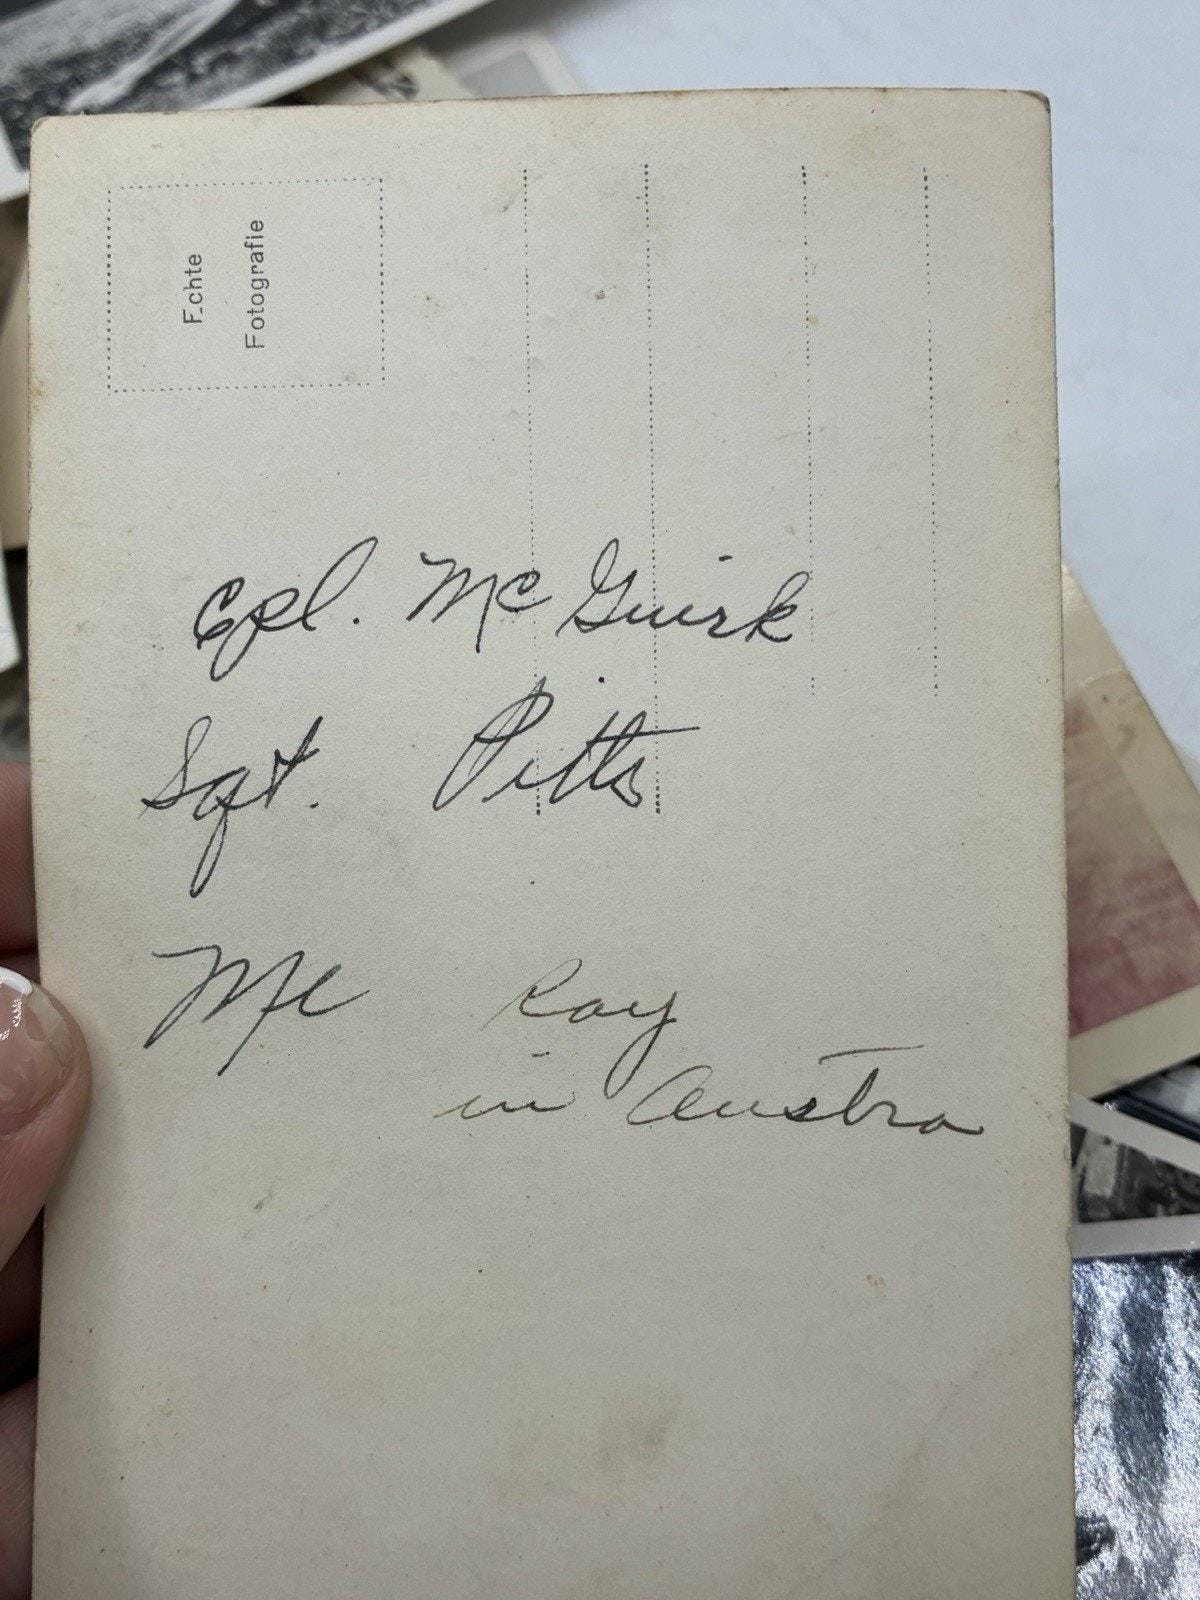 Echte
Fotografie
Cpl. McGuirk
Sgt. Pitts
Me Ray
in Austra